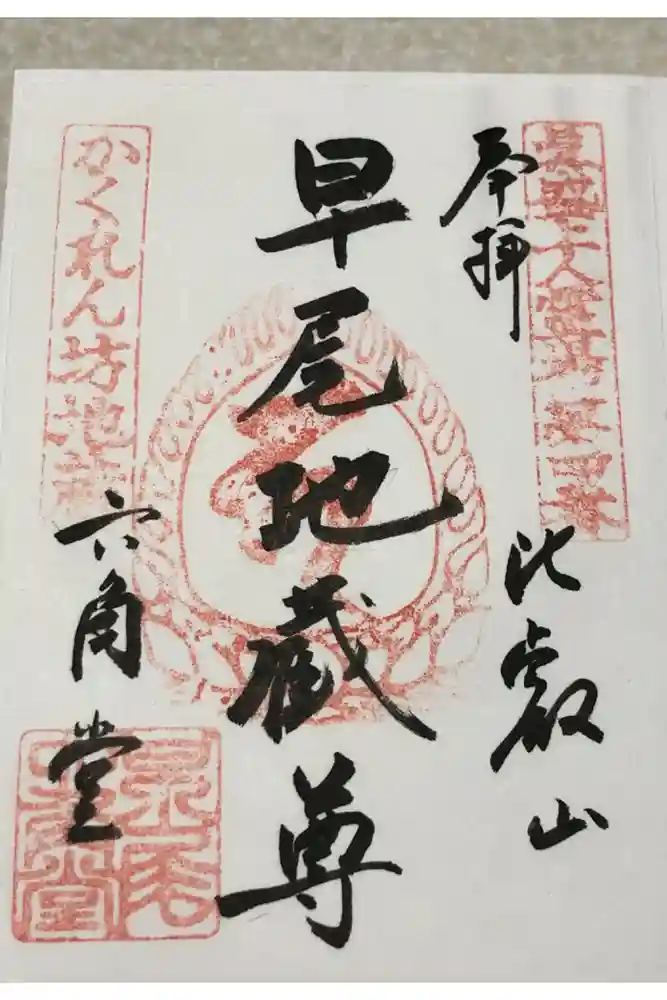 奉拝
比叡山
早尾地蔵尊
かくれん坊地蔵
六角堂